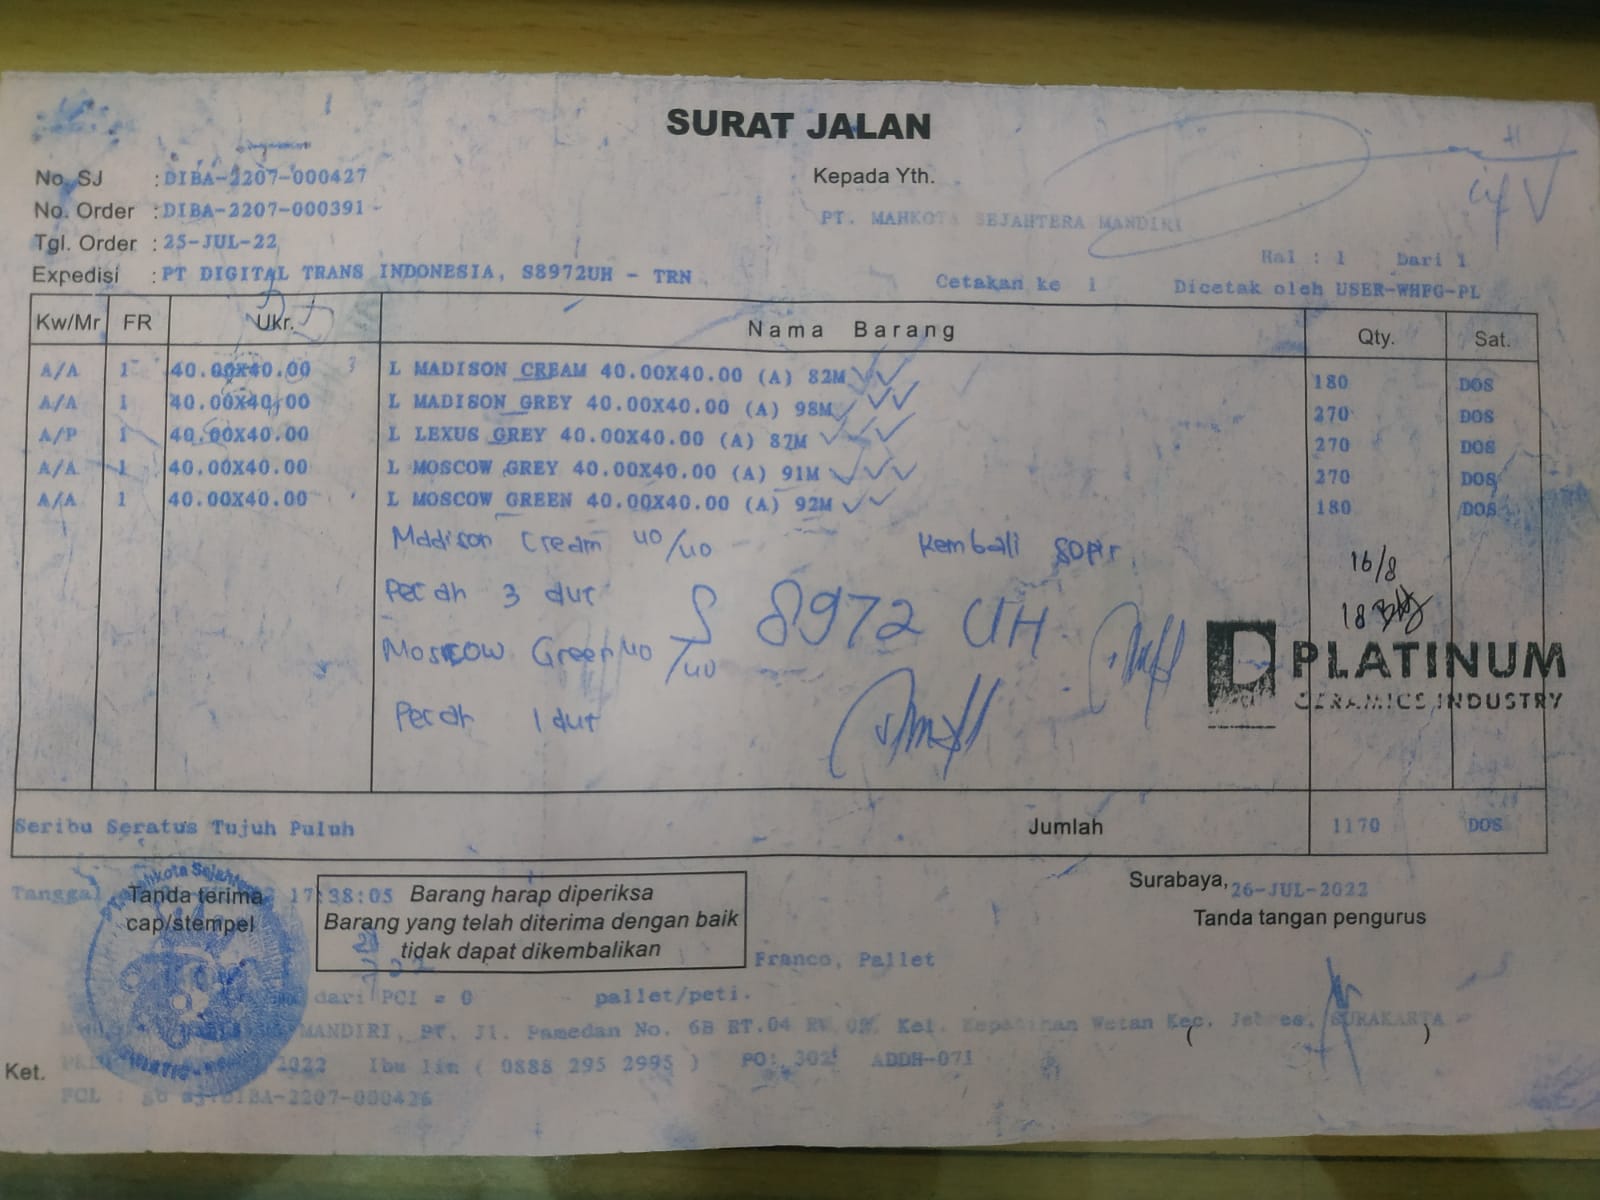 SURAT JALAN
No. SJ : DIBA-2207-000427
No. Order : DIBA-2207-000391 -
Tgl. Order : 25-JUL-22
Expedisi : PT DIGITAL TRANS INDONESIA, S8972UH - TRN
Kepada Yth.
PT. MAHKOTA SEJAHTERA MANDIRI
Hal : 1 Dari 1
Cetakan ke 1 Dicetak oleh USER-WHPG-PL
Kw/Mr FR Ukr. Nama Barang Qty. Sat.
A/A 1 40.00X40.00 L MADISON CREAM 40.00X40.00 (A) 82M 180 DOS
A/A 1 40.00X40.00 L MADISON GREY 40.00X40.00 (A) 98M 270 DOS
A/P 1 40.00X40.00 L LEXUS GREY 40.00X40.00 (A) 87M 270 DOS
A/A 1 40.00X40.00 L MOSCOW GREY 40.00X40.00 (A) 91M 270 DOS
A/A 1 40.00X40.00 L MOSCOW GREEN 40.00X40.00 (A) 92M 180 DOS
Madison Cream 40/40 - Kembali Sopir
Pecah 3 dut
S 8972 UH
Moscow Green 40/40
Pecah 1 dut
16/8
18
PLATINUM
CERAMICS INDUSTRY
Seribu Seratus Tujuh Puluh Jumlah 1170 DOS
Tanggal 17:38:05
Tanda terima
cap/stempel
Barang harap diperiksa
Barang yang telah diterima dengan baik
tidak dapat dikembalikan
Surabaya, 26-JUL-2022
Tanda tangan pengurus
Franco, Pallet
dari PCI = 0 pallet/peti.
MANDIRI, PT. Jl. Pamedan No. 6B RT.04 Kel. Kepatihan Wetan Kec. Jebres, SURAKARTA
( )
Ket.
2022 Ibu lin ( 0888 295 2995 ) PO: 302 ADDH-071
PCL : gb sj:DIBA-2207-000426